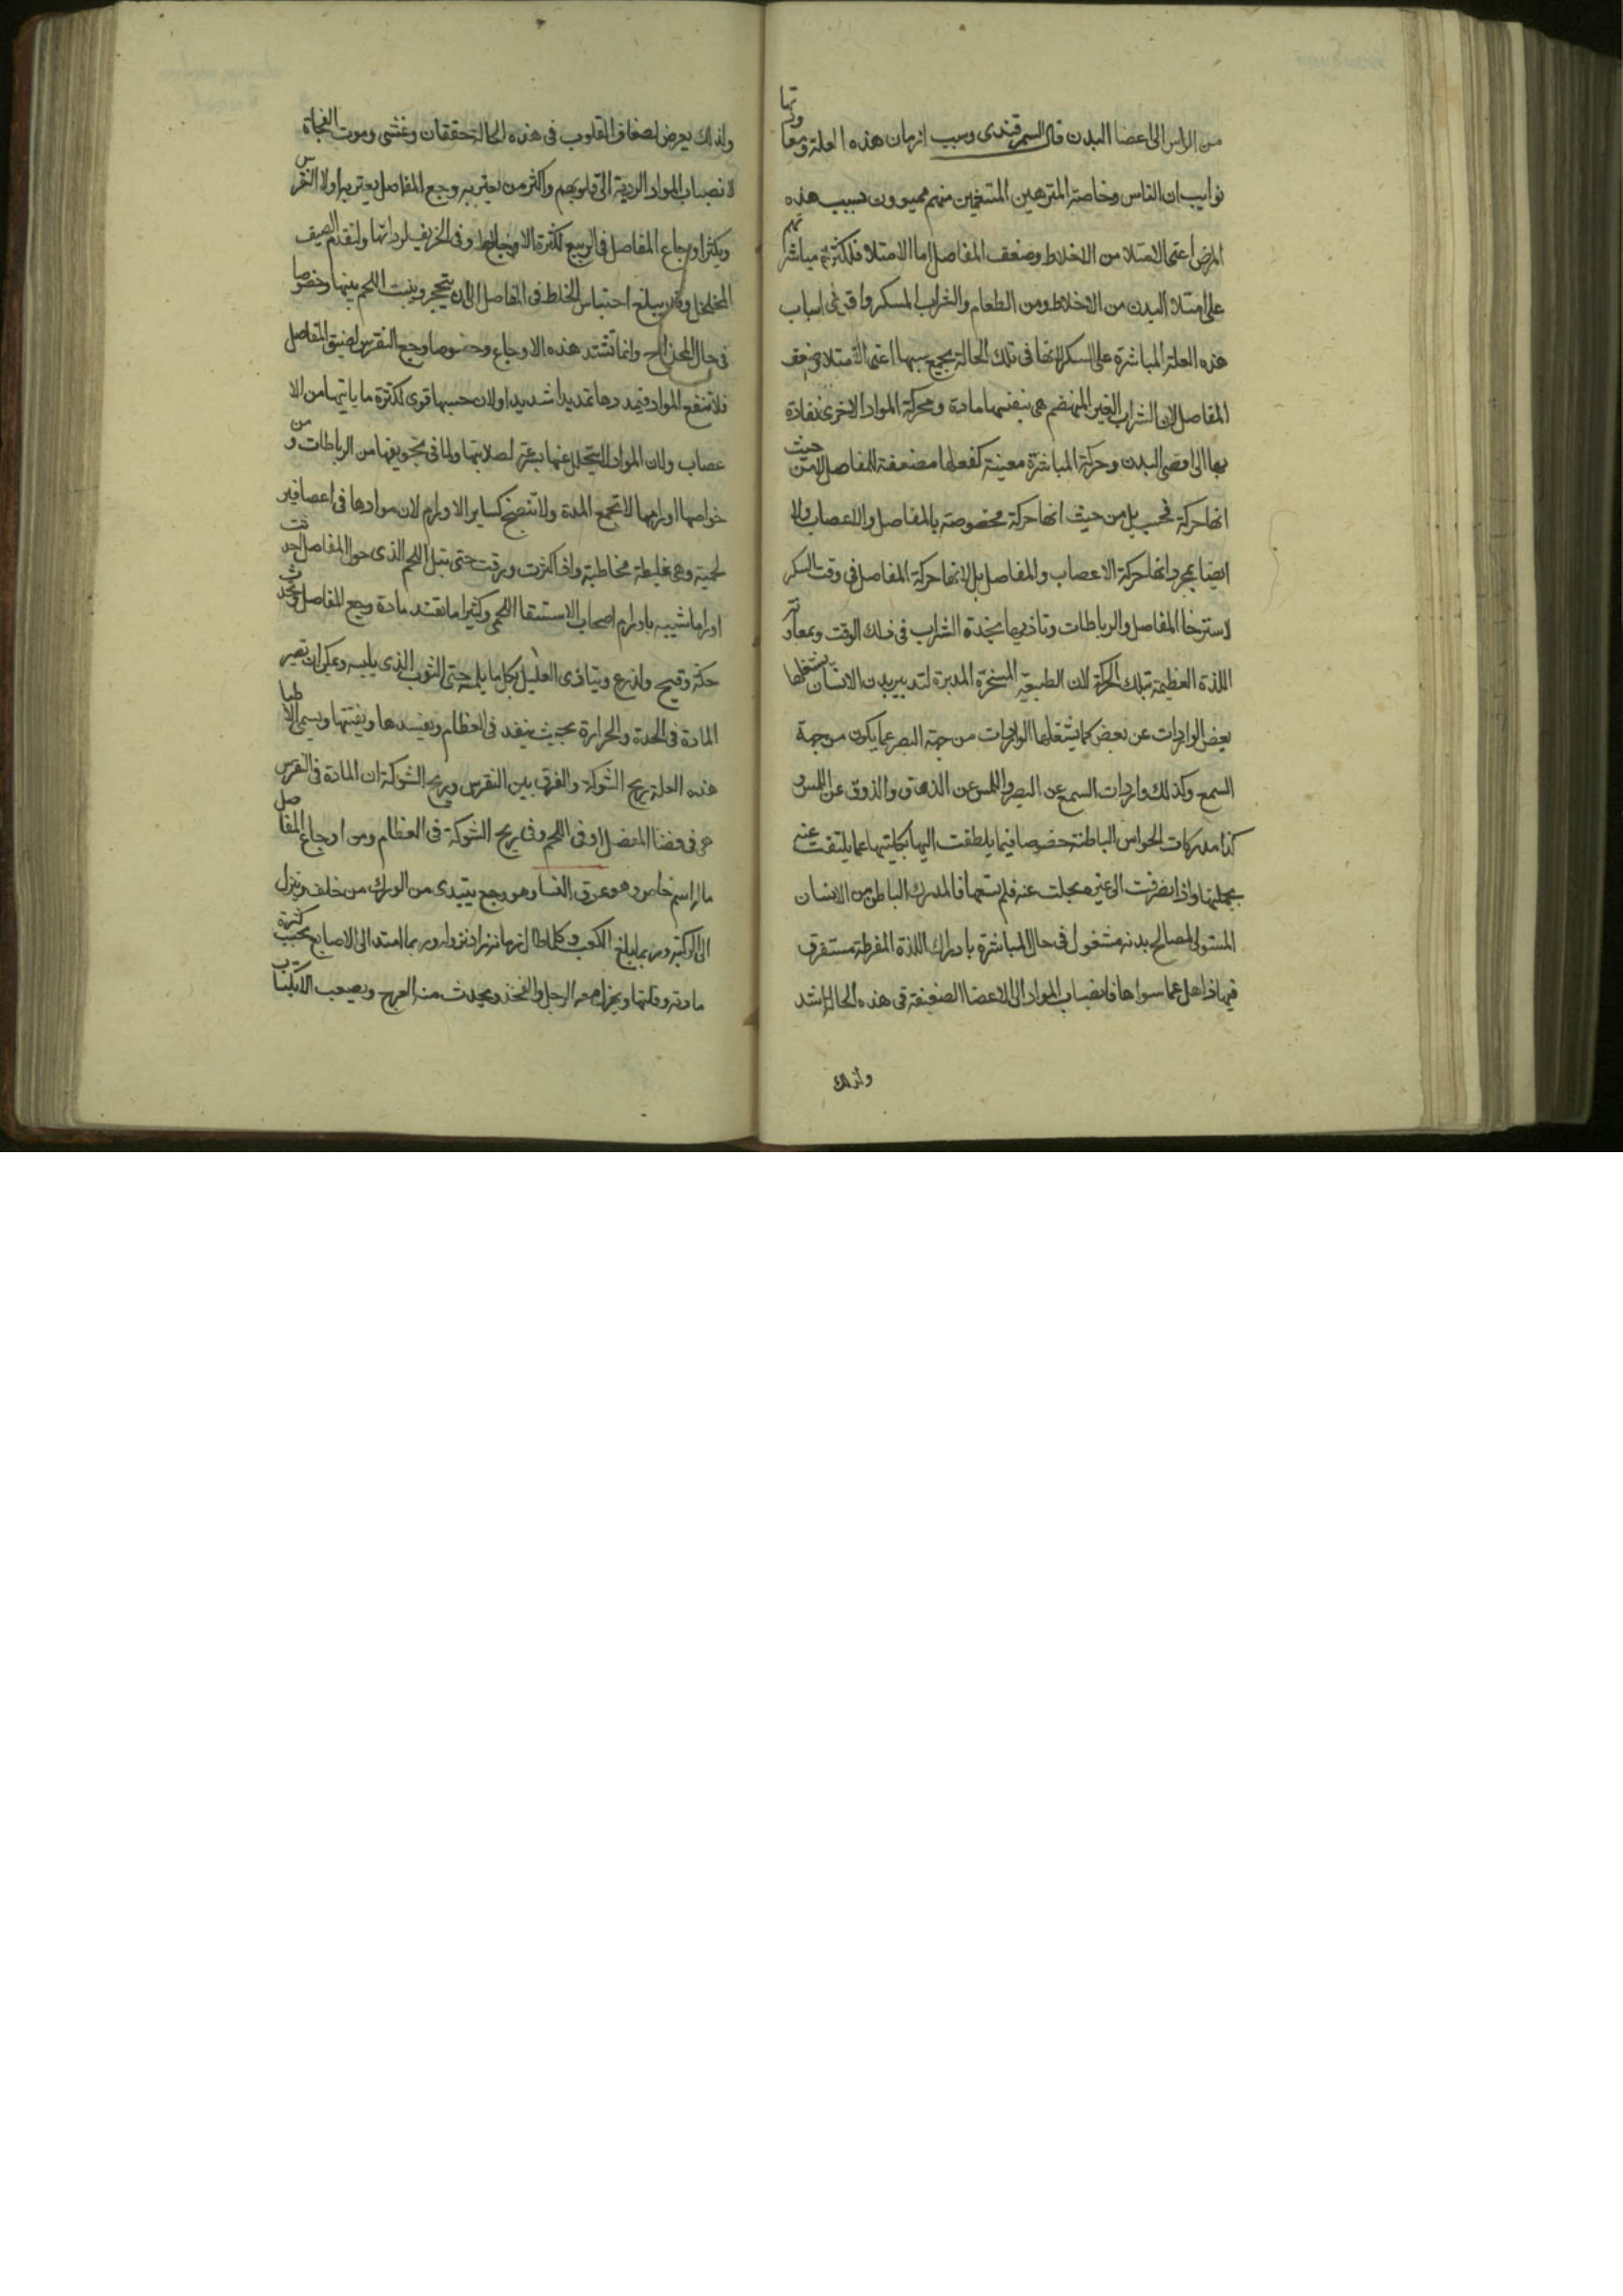 من الراس الى اعضا البدن قال السمرقندى وسبب ازمان هذه العلة ومعاودتها
نوايب ان الناس وخاصة المترهين المتنعمين منهم مهيوون بسبب هذه
المرض اعنى الامتلا من الاخلاط وضعف المفاصل اما الامتلا فلكثرة مباشرتهم
على امتلا البدن من الاخلاط ومن الطعام والشراب المسكر واقوى اسباب
هذه العلة المباشرة على السكر لانها فى تلك الحالة يجمع سببها اعنى الامتلا وضعف
المفاصل لان الشراب الغير المنهضم هى بنفسها مادة ومحركة المواد الاخرى نفادة
بها الى اقصى البدن وحركة المباشرة معينة كفعلها مضعفة للمفاصل لا من حيث
انها حركة فحسب بل من حيث انها حركة مخصوصة بالمفاصل والاعصاب ولا
ايضا بمجرد انها حركة الاعصاب والمفاصل بل لانها حركة المفاصل فى وقت السكر
لاسترخا المفاصل والرباطات وتاذيها بحدة الشراب فى ذلك الوقت وبمعاونة
اللذة العظيمة تبلك الحركة لان الطبيعة المسخرة المدبرة لتدبير بدن الانسان يشغلها
بعض الواردات عن بعض كما يشغلها الواردات من جهة البصر عما يكون من جهة
السمع وكذلك واردات السمع عن البصر واللمس عن الذوق والذوق عن اللمس و
كذا مدركات الحواس الباطنة خصوصا فيما يلطفت اليها بكليتها عما يلتفت عنه
بجملتها واذا انصرفت الى غيره محلت عنه فلم تتمها فالمدرك الباطن من الانسان
المستولى لمصالح بدنه مشغول فى حال المباشرة بادراك اللذة المفرطة مستغرق
فيها ذاهل عما سواها فانصباب المواد الى الاعضا الضعيفة فى هذه الحالة اشد
ولذلك
ولذلك يعرض لضعاف القلوب فى هذه الحالة خفقان وغشى وموت الفجاة
لانصباب المواد الردية الى قلوبهم واكثر من يعتريه وجع المفاصل يعتريه اولا النقرس
ويكثر اوجاع المفاصل فى الربيع لكثرة الاوجاع وفى الخريف لرداتها ولتقدم الصيف
المخلخل وقد يبلغ احتباس الخلط فى المفاصل الى ان يتحجر وينبت اللحم بينها وخصوصا
فى حال وانما تشتد هذه الاوجاع وخصوصا وجع النقرس لضيق المفاصل
فلا تنفع المواد فيمددها تمديدا شديدا ولان حسها قوى لكثرة ما ياتيها من الا
عصاب ولان المواد لا يتحلل عنها بسرعة لصلابتها ولما فى تجويفها من الرباطات ومن
خواصها اورامها لا تجمع المدة ولا تنضج كساير الاورام لان موادها فى اعضا غير
لحمية وهى غليظة مخاطية واذا كثرت ورقت حتى تبل اللحم الذى حول المفاصل احدثت
اوراما شبيه باورام اصحاب الاستسقا اللحمى وكثيرا ما يفسد مادة وجع المفاصل ويحدث
حكة وقيح ولذع ويتاذى العليل بكل ما يلمسه حتى الثوب الذى يلبسه ويمكن ان تصير
المادة فى الحدة والحرارة بحيث ينفد فى العظام ويفسدها ويفتتها ويسمى الاطبا
هذه العلة ريح الشوكة والفرق بين النقرس وريح الشوكة ان المادة فى النقرس
هى فى فضا المفصل او فى اللحم وفى ريح الشوكة فى العظام ومن اوجاع المفاصل
ما له اسم خاص وهو عرق النسا وهو وجع يبتدى من الورك من خلف وينزل
الى الركبة وربما يبلغ الكعب وكلما طال زمانه زاد نزوله وربما امتد الى الاصابع بحسب كثرة
مادته وقلتها ويهزل معه الرجل والفخذ ويحدث منه العرج ويصعب الانكباب